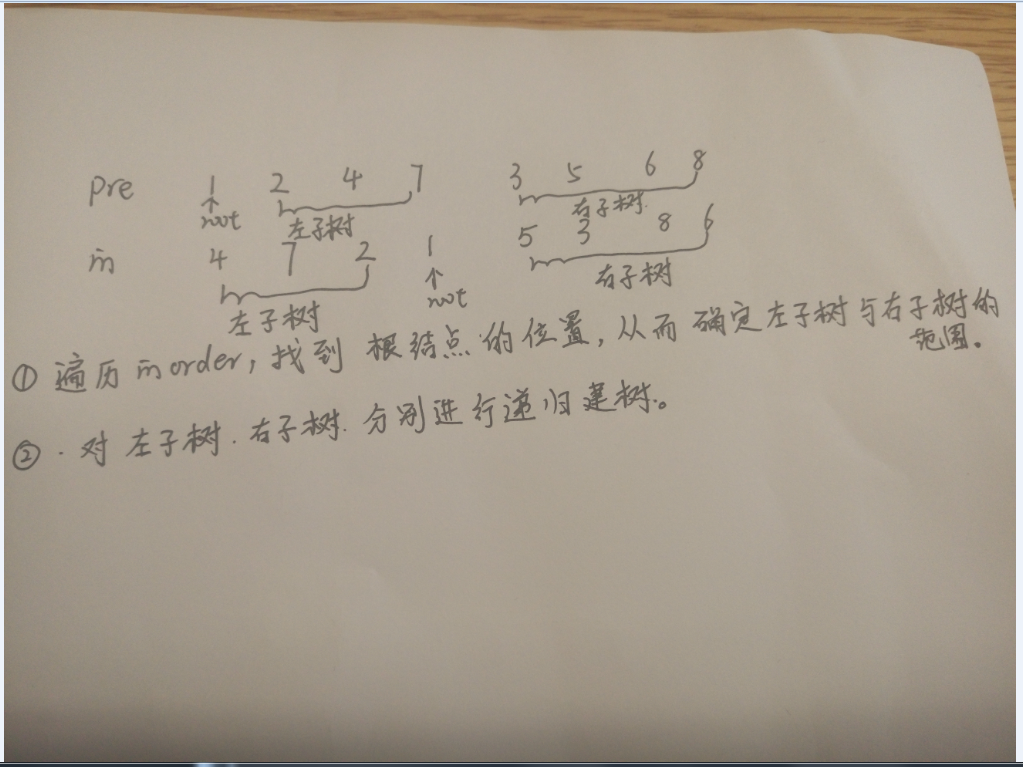 pre 1 2 4 7 3 5 6 8
root 左子树 右子树.
in 4 7 2 1 5 3 8 6
左子树 root 右子树
① 遍历 inorder, 找到 根结点 的位置, 从而 确定左子树与右子树的
范围。
② . 对 左子树 . 右子树. 分别进行递归建树。